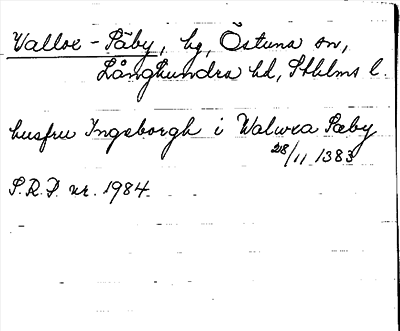 Walloe - Säby, hg, Östuna sn,
Långhundra hd, Sthlms l.
husfru Ingeborgh i Walwea Sæby
28/11 1383
S.R.P. nr. 1984.